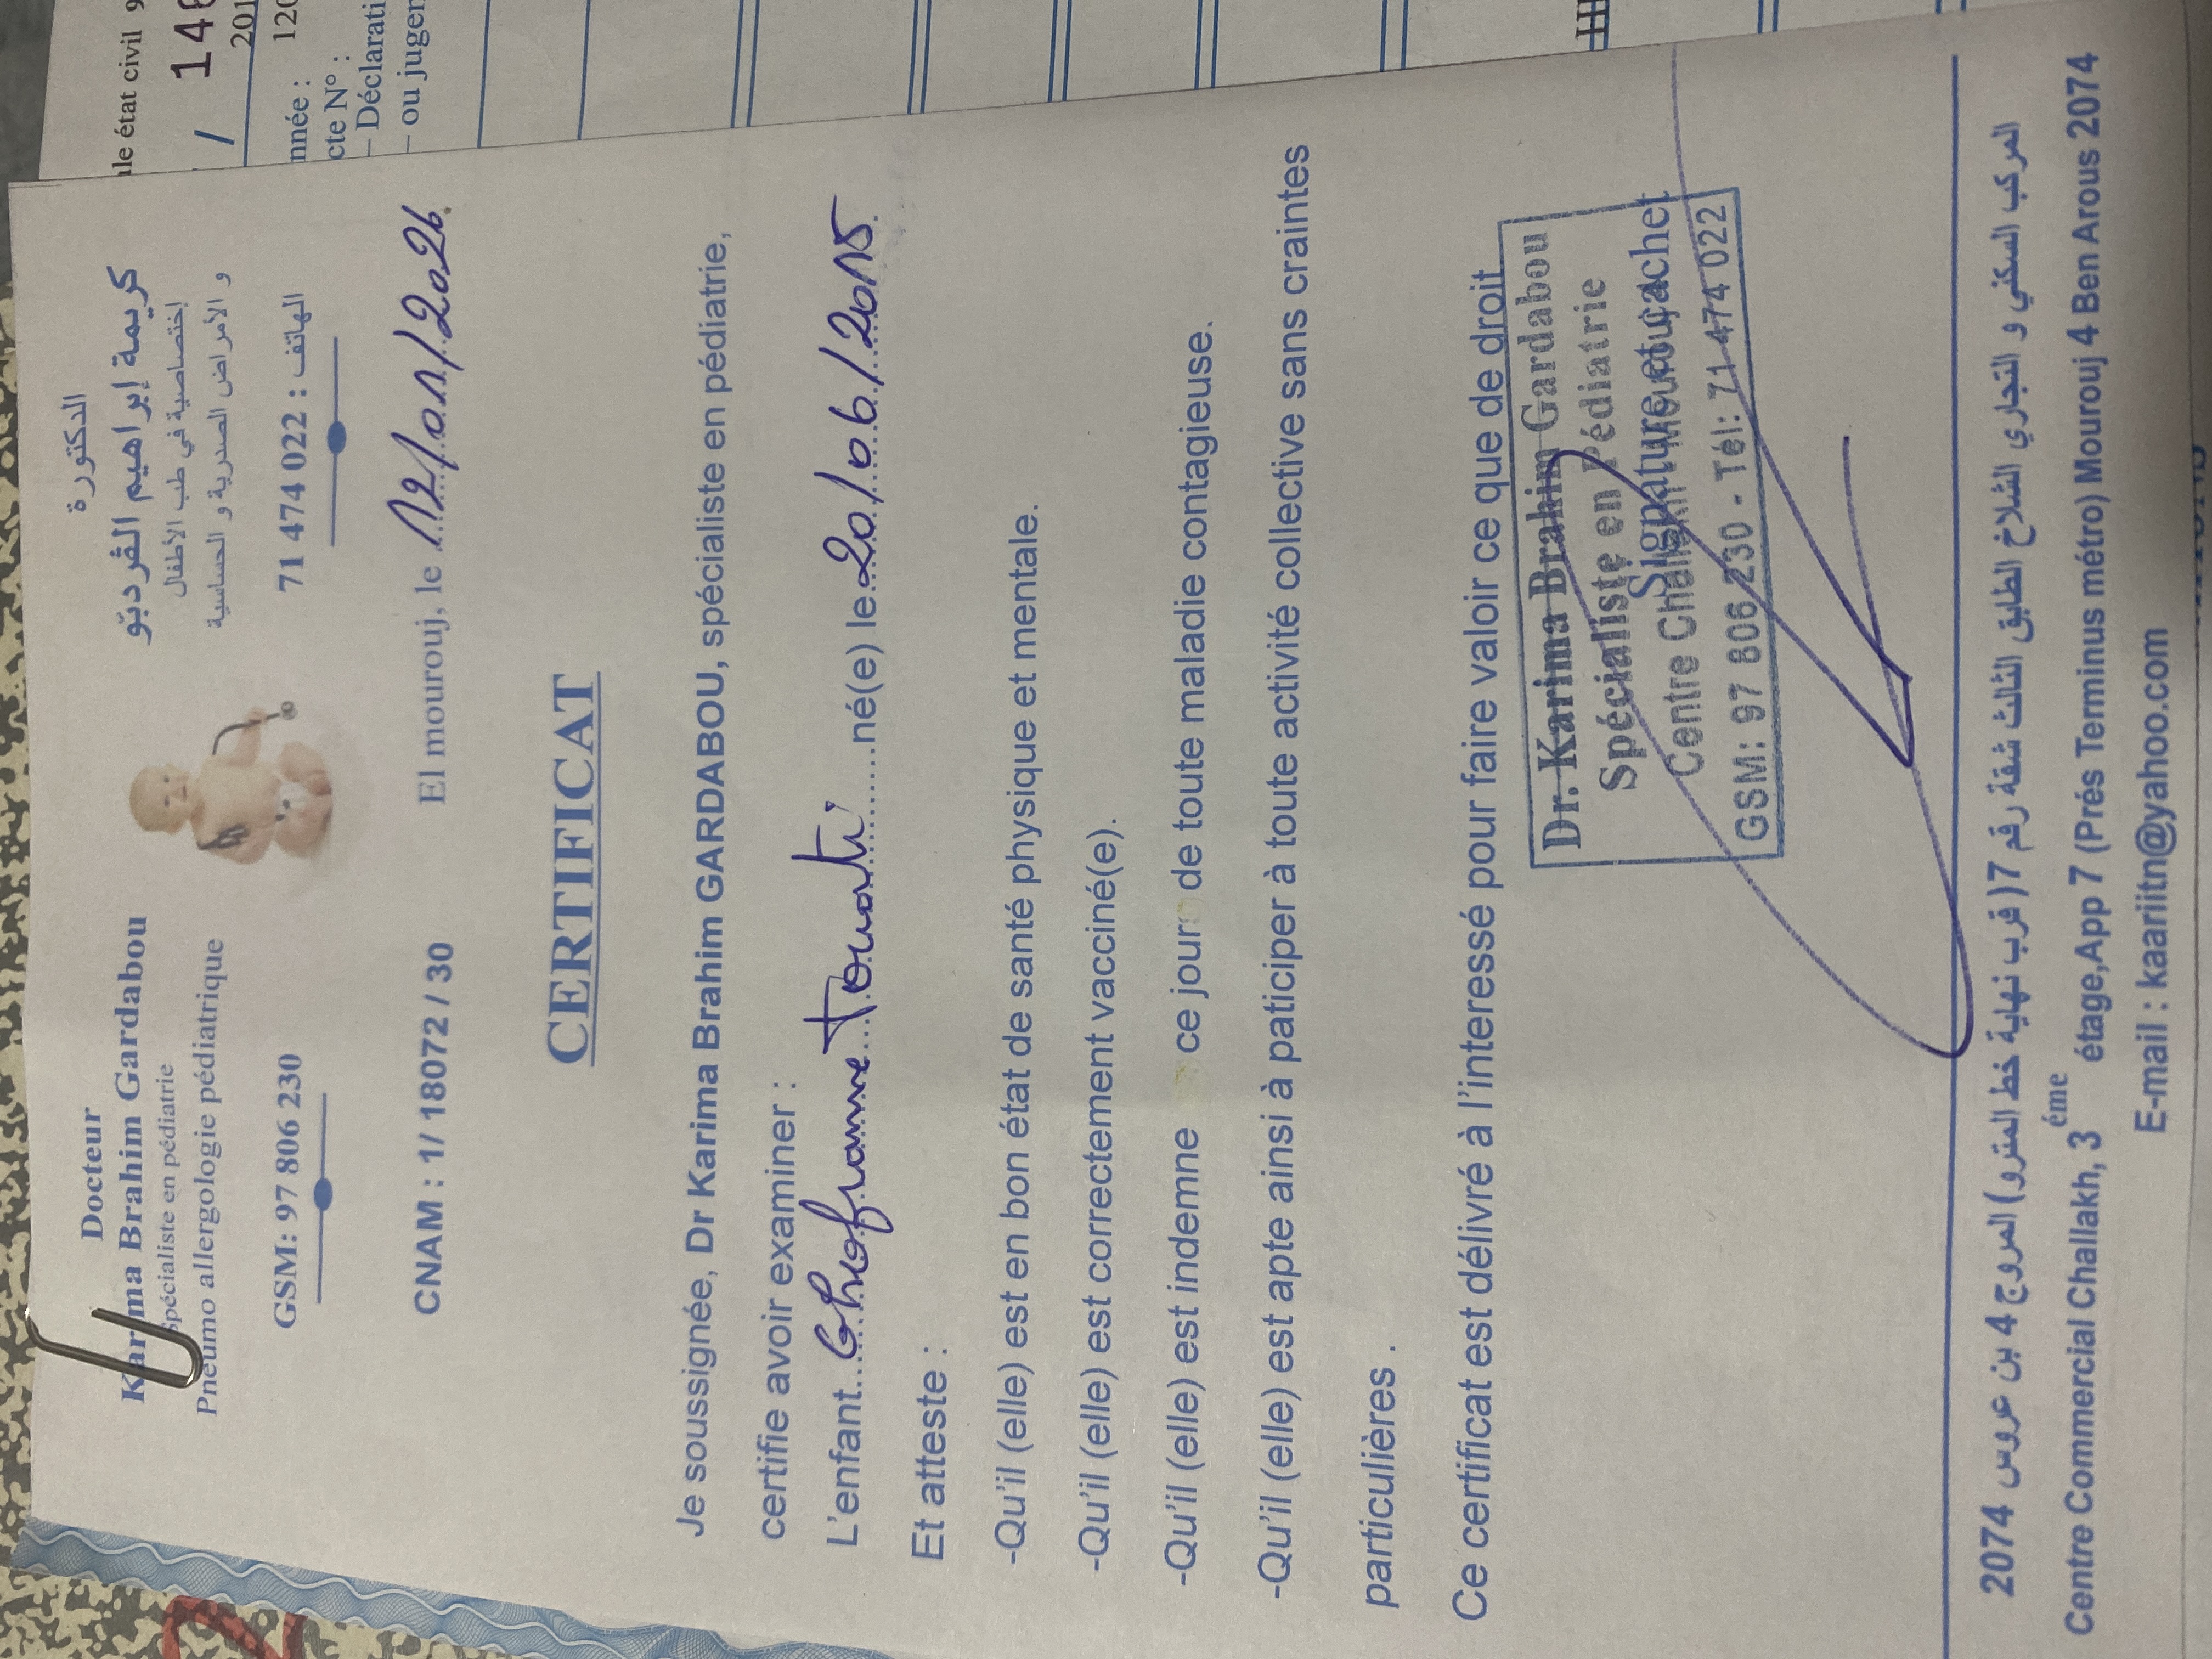 Docteur
Karima Brahim Gardabou
Spécialiste en pédiatrie
Pneumo allergologie pédiatrique
GSM: 97 806 230
الدكتورة
كريمة إبراهيم الڤردبّو
إختصاصية في طب الأطفال
و الأمراض الصدرية و الحساسية
الهاتف : 022 474 71
CNAM : 1/ 18072 / 30
El mourouj, le 12/01/2026
CERTIFICAT
Je soussignée, Dr Karima Brahim GARDABOU, spécialiste en pédiatrie,
certifie avoir examiner :
L'enfant Ghofranne Touati né(e) le 20/06/2015
Et atteste :
-Qu'il (elle) est en bon état de santé physique et mentale.
-Qu'il (elle) est correctement vacciné(e).
-Qu'il (elle) est indemne ce jour de toute maladie contagieuse.
-Qu'il (elle) est apte ainsi à paticiper à toute activité collective sans craintes
particulières .
Ce certificat est délivré à l'interessé pour faire valoir ce que de droit
Dr. Karima Brahim Gardabou
Spécialiste en Pédiatrie
Signature et cachet
Centre Challakh Mourouj
GSM: 97 806 230 - Tél: 71 474 022
المركب السكني و التجاري الشلاخ الطابق الثالث شقة رقم 7( قرب نهاية خط المترو) المروج 4 بن عروس 2074
Centre Commercial Challakh, 3éme étage,App 7 (Prés Terminus métro) Mourouj 4 Ben Arous 2074
E-mail : kaariitn@yahoo.com
état civil
146
201
nnée : 120
cte N° :
– Déclarati
– ou juger